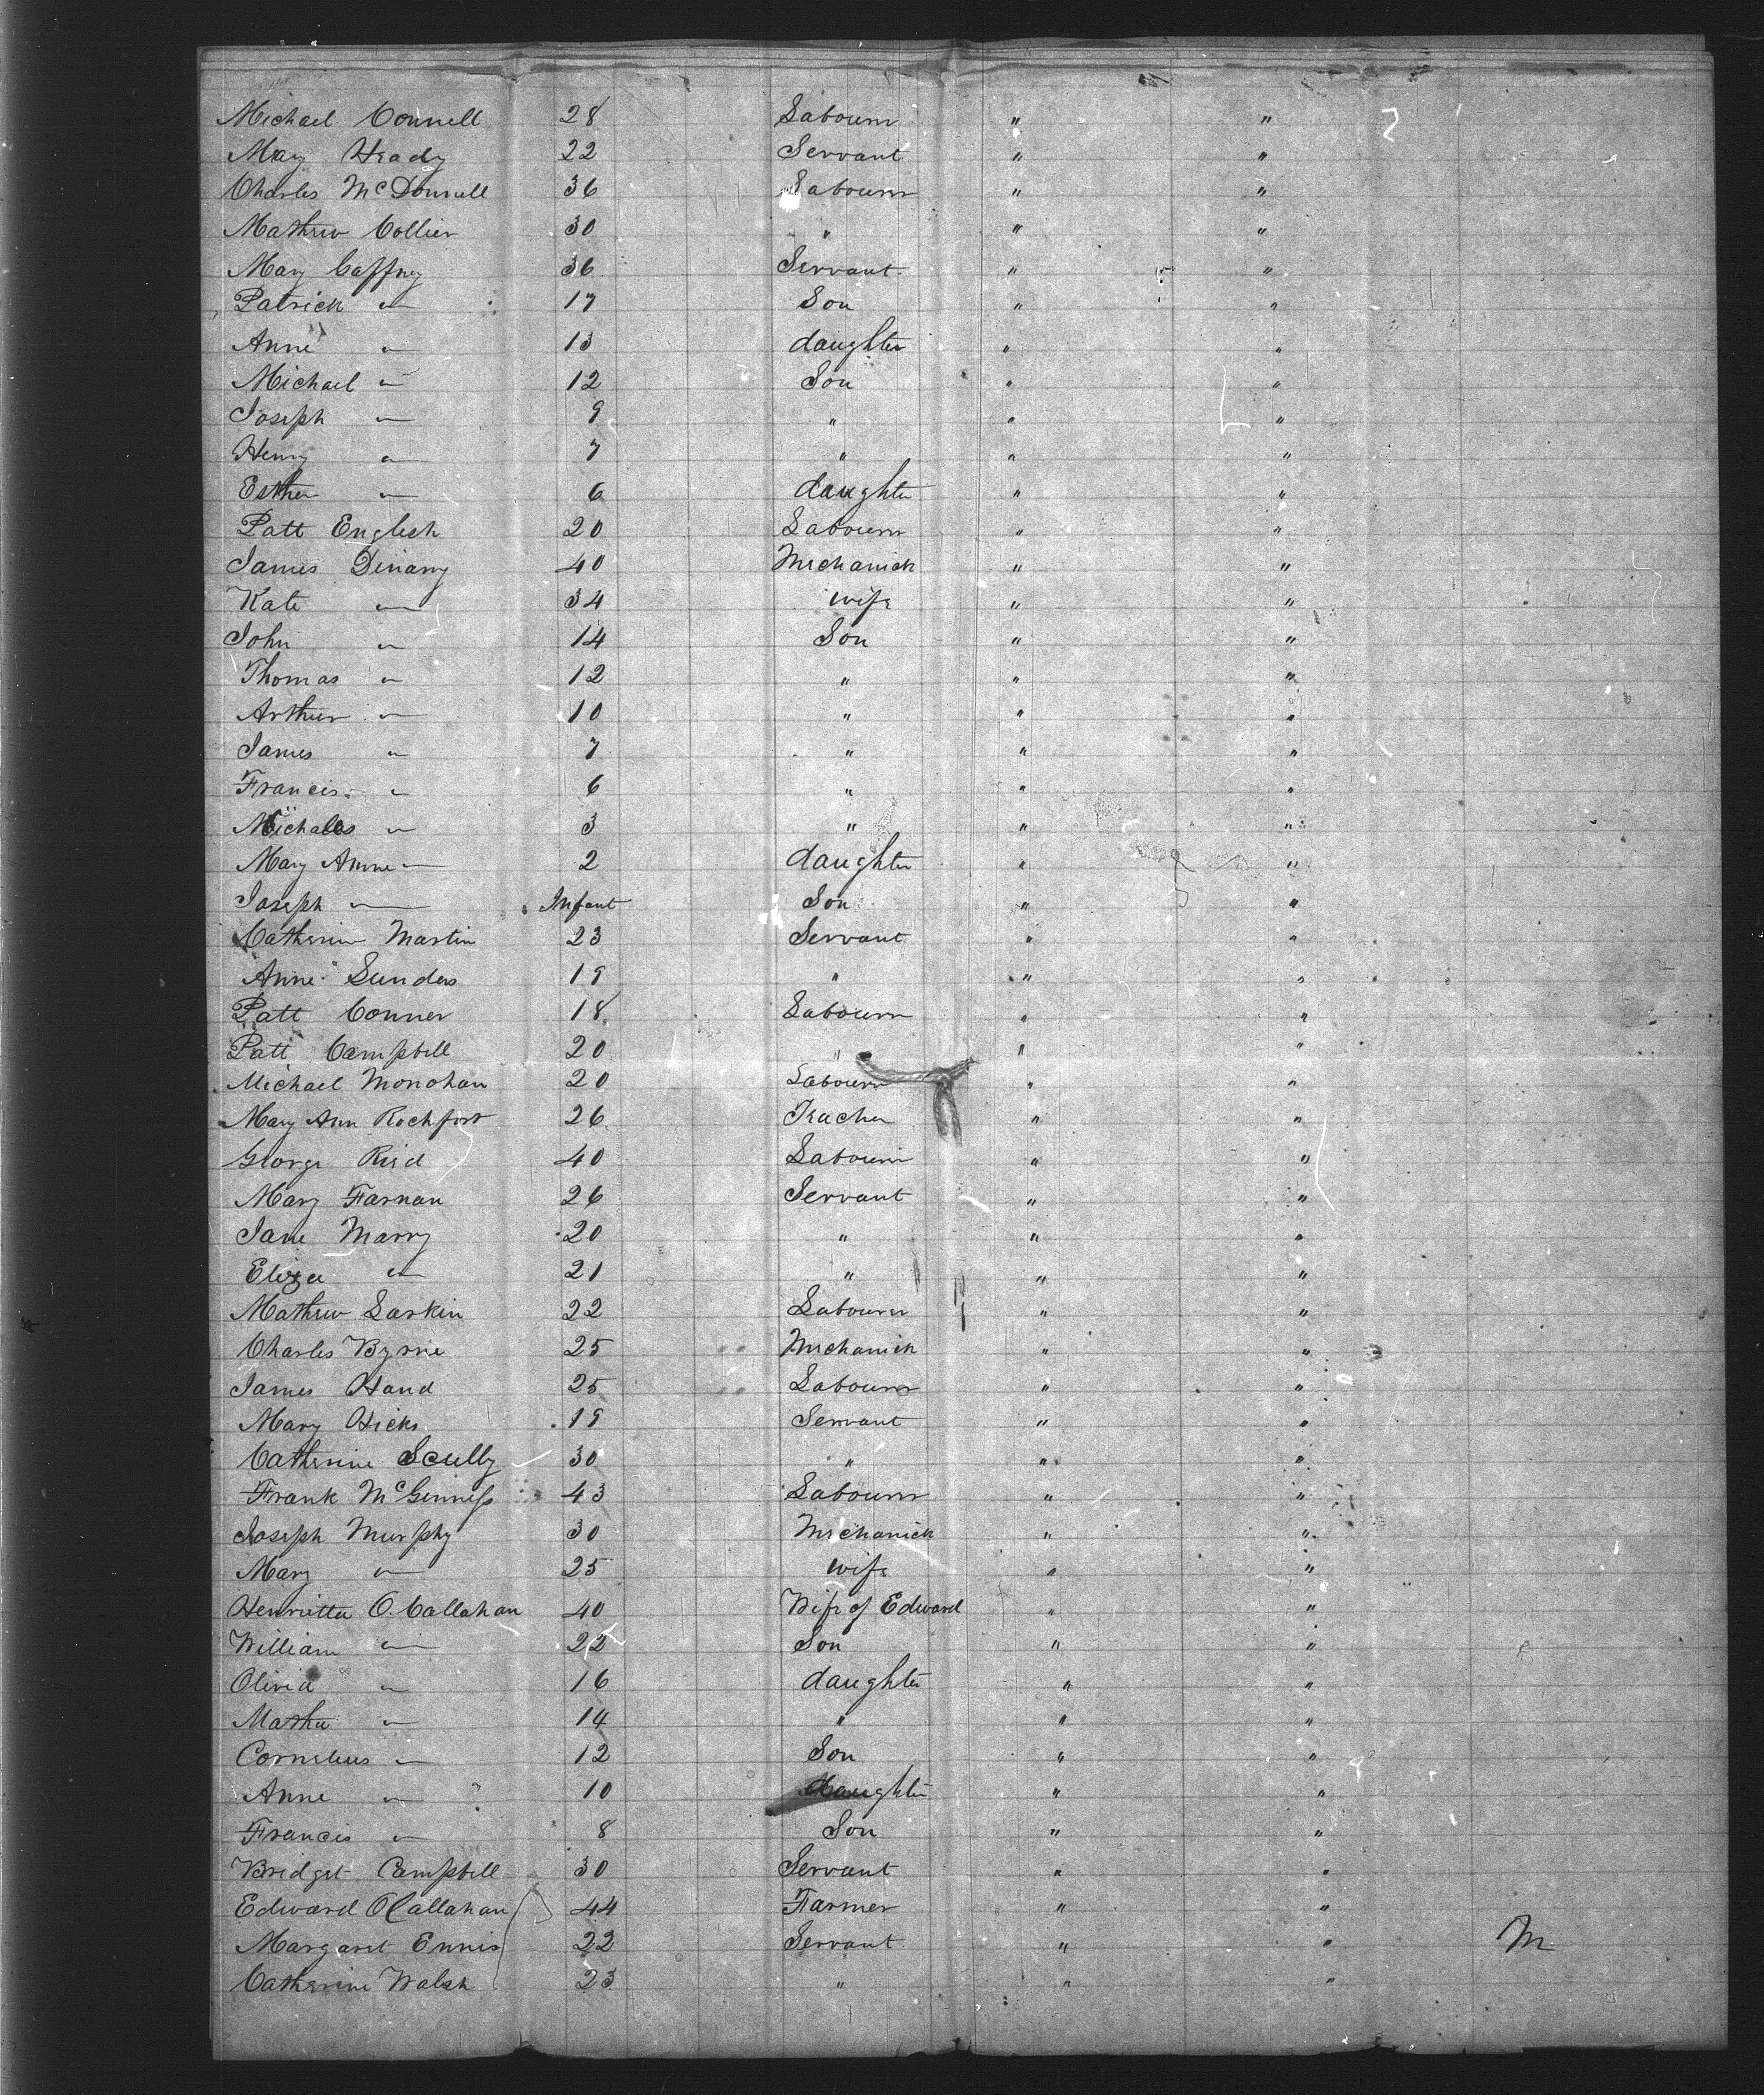 Michael Connell 28 Labourer " "
Mary Heady 22 Servant " "
Charles McDonnell 36 Labourer " "
Mathew Collier 30 " " "
Mary Caffrey 36 Servant " "
Patrick " 17 Son " "
Anne " 13 daughter " "
Michael " 12 Son " "
Joseph " 9 " " "
Henry " 7 " " "
Esther " 6 daughter " "
Patt English 20 Labourer " "
James Dinany 40 Mechanick " "
Kate " 34 wife " "
John " 14 Son " "
Thomas " 12 " " "
Arthur " 10 " " "
James " 7 " " "
Francis " 6 " " "
" 3 " " "
Mary Anne " 2 daughter " "
Joseph " Infant Son " "
Catherine Martin 23 Servant " "
Anne Sunders 19 " " "
Patt Conner 18 Labourer " "
Patt Campbell 20 " " "
Michael Monohan 20 Labourer " "
Mary Ann Rochfort 26 Teacher " "
George Reid 40 Labourer " "
Mary Farnan 26 Servant " "
Jane Marry 20 " " "
Eliza " 21 " " "
Mathew Larkin 22 Labourer " "
Charles Byrne 25 Mechanick " "
James Hand 25 Labourer " "
Mary Hicks 19 Servant " "
Catherine Scully 30 " " "
Frank McGinness 43 Labourer " "
Joseph Murphy 30 Mechanick " "
Mary " 25 wife " "
Henrietta O.Callahan 40 Wife of Edward " "
William " 22 Son " "
Olivia " 16 daughter " "
Martha " 14 " " "
Cornelius " 12 Son " "
Anne " 10 daughter " "
Francis " 8 Son " "
Bridget Campbell 30 Servant " "
Edward OCallahan 44 Farmer " "
Margaret Ennis 22 Servant " " M
Catherine Walsh 23 " " "